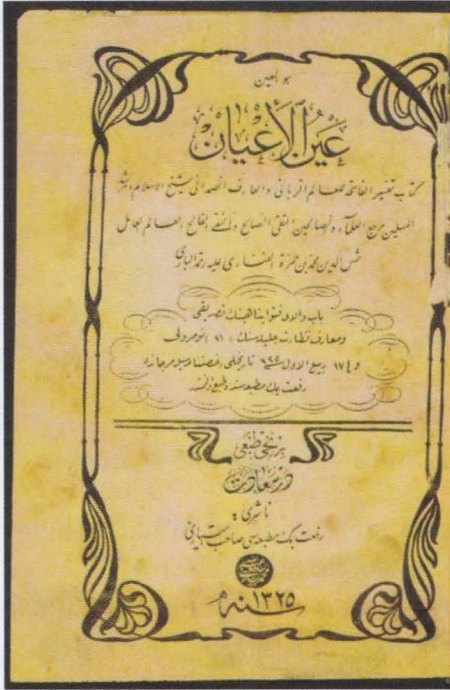 هو المعين
عين الأعيان
كتاب تفسير الفاتحة للعالم الربانى والعارف الصمدانى شيخ الاسلام مرشد
المسلمين مرجع العلماء والصالحين التقى الصالح والنقى الفالح العالم العامل
شمس الدين محمد بن حمزة الفنارى عليه رحمة البارى
باب والاى فتوا پناهينك تصديقى
ومعارف نظارت جليله سنك (٩١) نومرولى
و فى ١٧ ربيع الاول تاريخلى رخصتنامه سيله
رفعت بك مطبعه سنده طبع اولنمشدر
برنجى طبعى
در سعادت
ناشرى :
رفعت بك مطبعه سى صاحب امتيازى
سنه ١٣٢٥ م